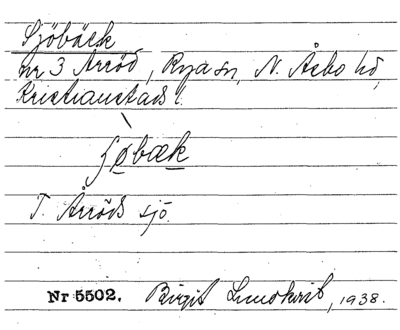 Sjöbäck
nr 3 Arröd, Rya sn, N. Åsbo hd,
Kristianstads l.
ʃøbæk
T. Årröds sjö.
Nr 5502. Birgit Lundkvist, 1938.